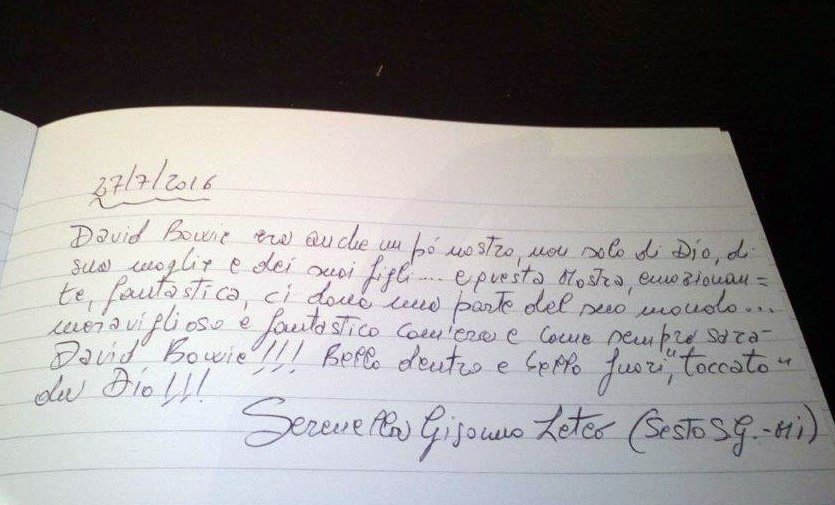 27/7/2016
David Bowie era anche un pó nostro, non solo di Dio, di
sua moglie e dei suoi figli.... e questa Mostra, emozionan=
te, fantastica, ci dona una parte del suo mondo...
meraviglioso e fantastico com'era e come sempre sarà
David Bowie!!! Bello dentro e bello fuori, "toccato"
da Dio!!!
Serenella Leteo (Sesto S.G.-Mi)